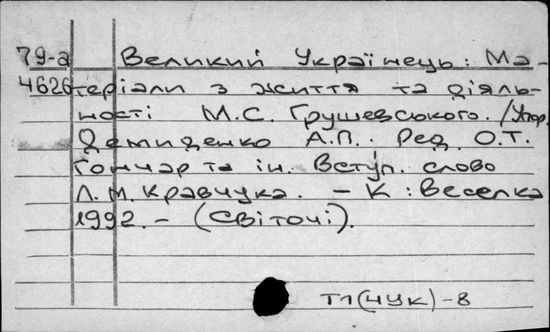 79-а Великий Українець: Ма-
4626 теріали з життя та діяль-
ності М.С. Грушевського. /Упор.
Демиденко А.П. Ред. О.Т.
Гончар та ін. Вступ. слово
Л.М. Кравчука. – К: Веселка
1992. – (Світочі).
ТП(4УК)-8